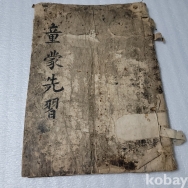 童蒙先習
kobay